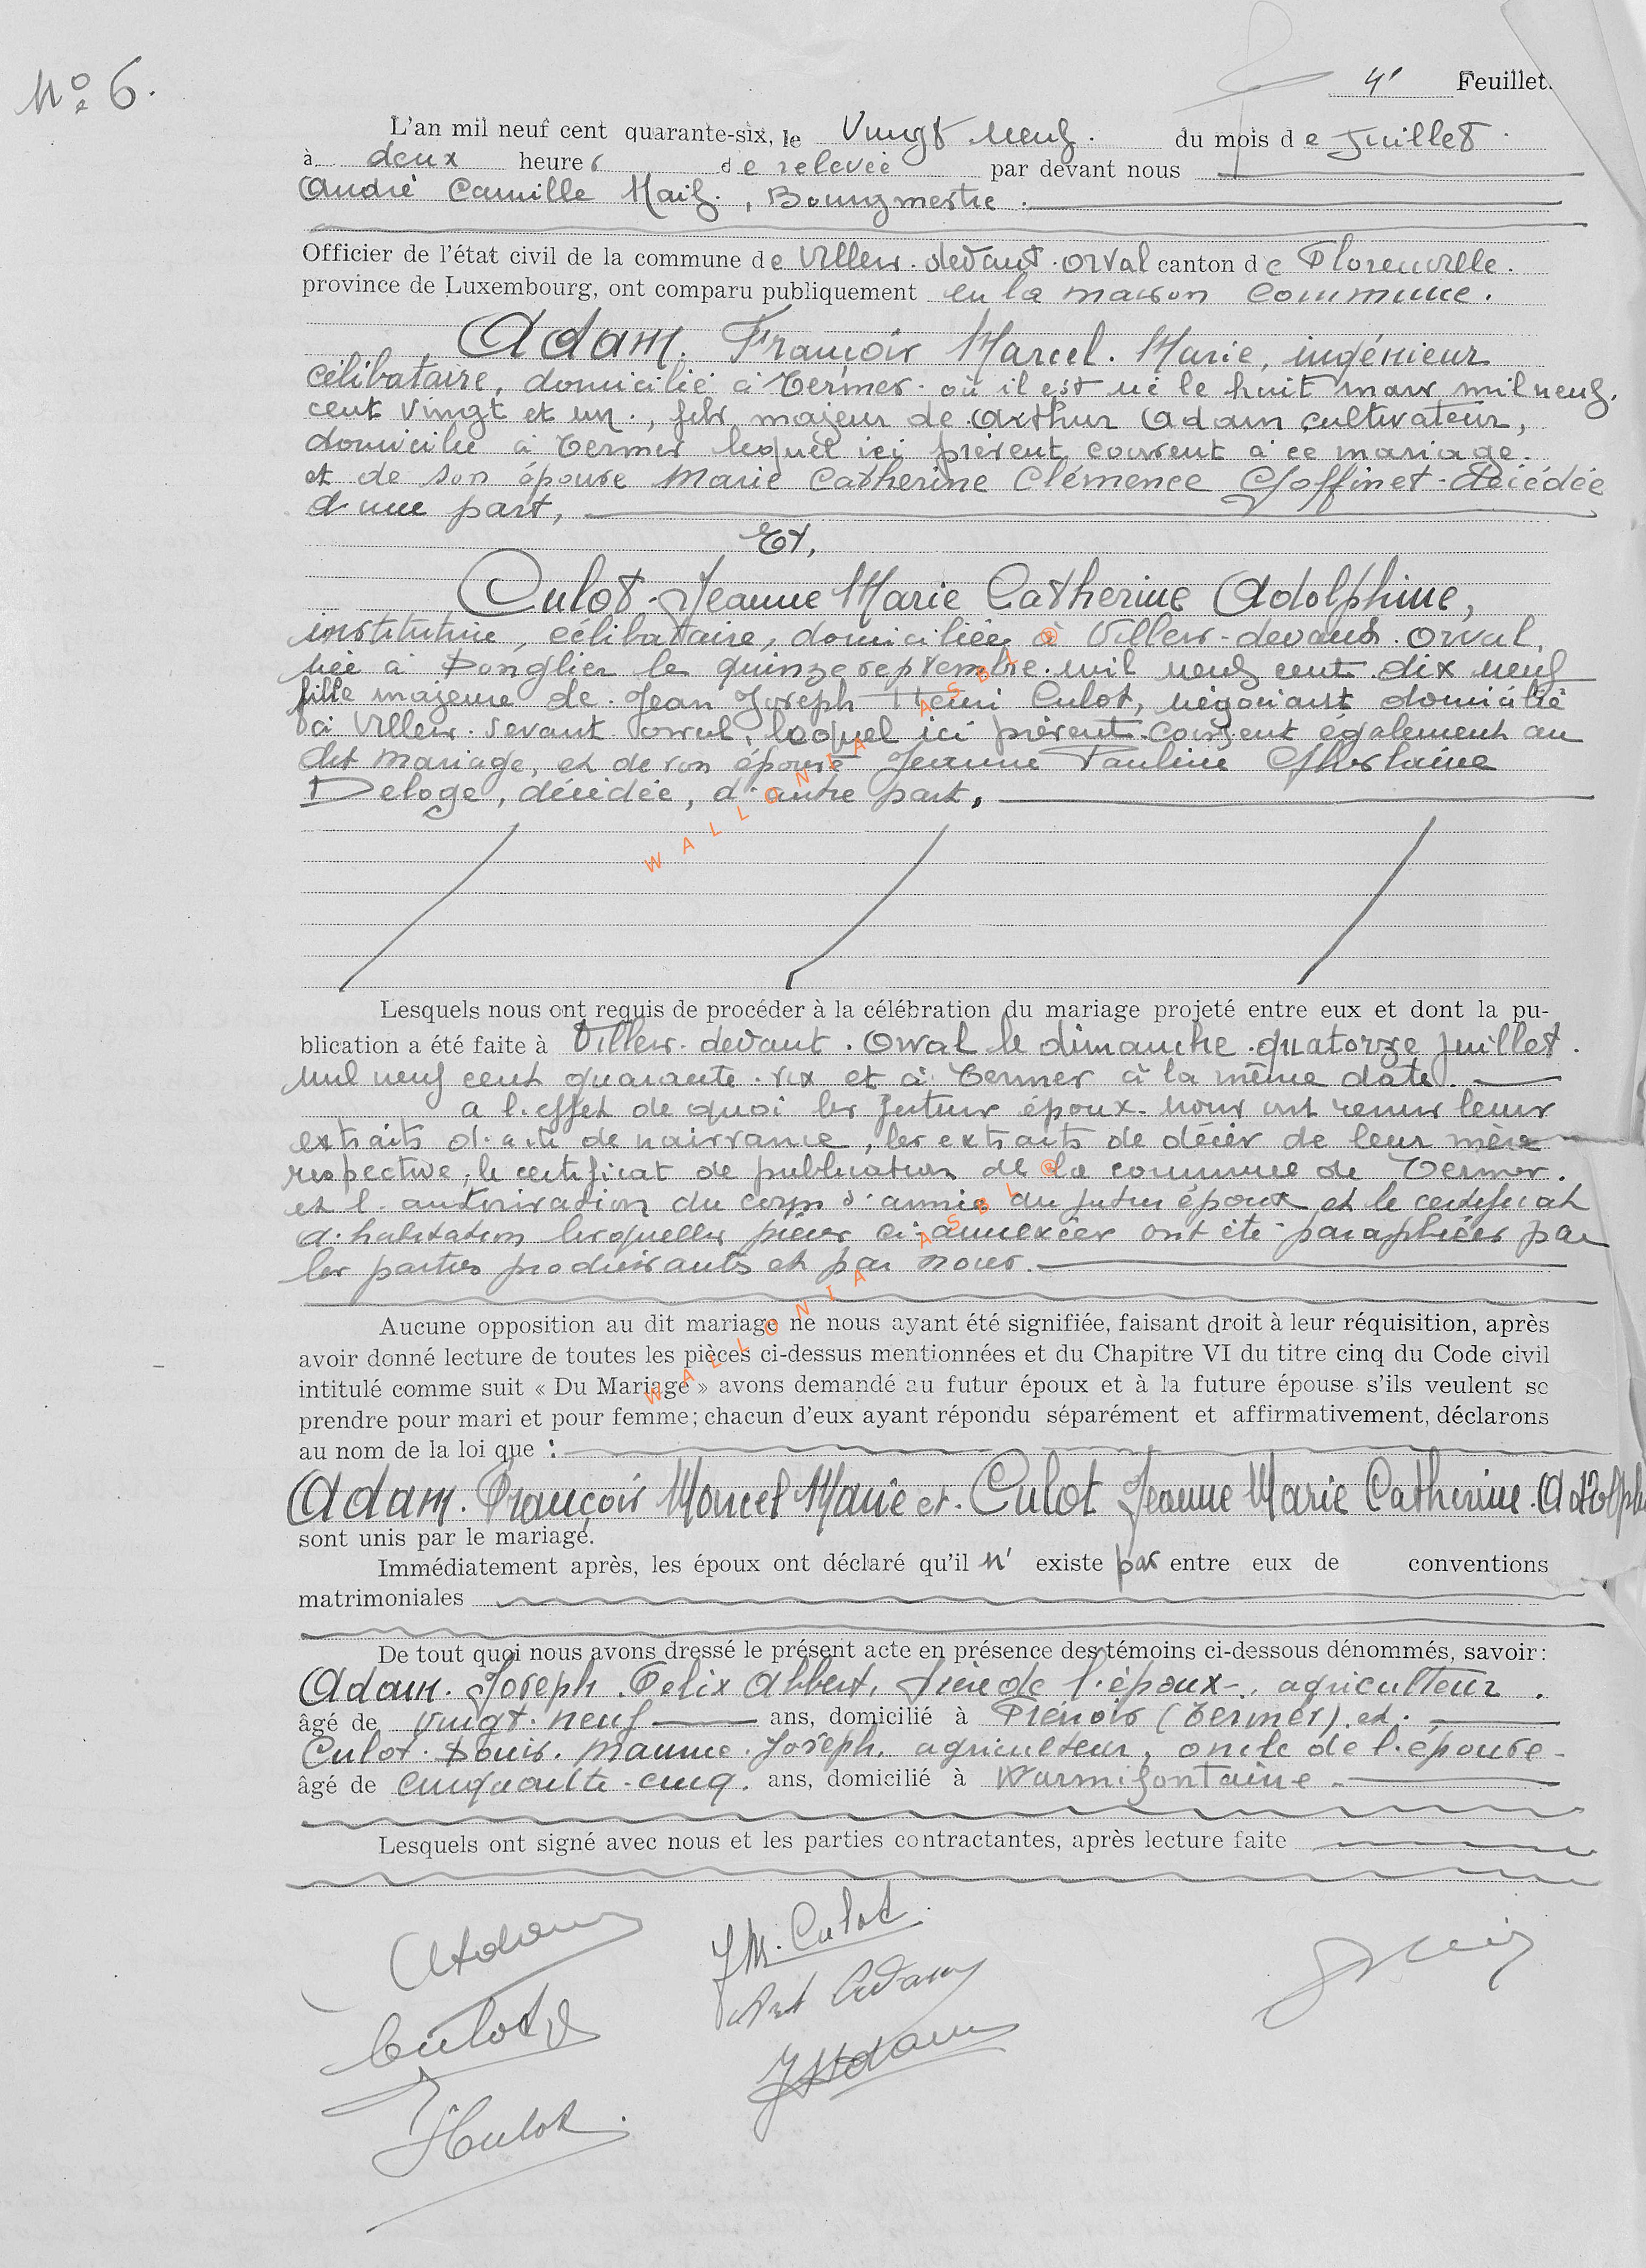 N° 6.
4e Feuillet.
L'an mil neuf cent quarante-six, le Vingt neuf. du mois de Juillet.
à deux heures de relevée par devant nous
André Camille , Bourgmestre.
Officier de l'état civil de la commune de Villers-devant-Orval canton de Florenville.
province de Luxembourg, ont comparu publiquement en la maison commune.
Adam. François Marcel. Marie, ingénieur
célibataire, domicilié à Termes. où il est né le huit mars mil neuf.
cent vingt et un., fils majeur de Arthur Adam cultivateur,
domicilié à Termes lequel ici présent consent à ce mariage.
et de son épouse Marie Catherine Clémence Goffinet-décédée
d'une part,
Et,
Culot-Jeanne Marie Catherine Adolphine,
institutrice, célibataire, domiciliée à Villers-devant-Orval,
née à Longlier le quinze septembre. mil neuf cent dix neuf
fille majeure de. Jean Joseph Henri Culot, négociant domicilié
à Villers-devant Orval, lequel ici présent-consent également au
dit mariage, et de son épouse Jeanne Pauline Ghislaine
Deloge, décédée, d'autre part,
Lesquels nous ont requis de procéder à la célébration du mariage projeté entre eux et dont la pu-
blication a été faite à Villers-devant-Orval le dimanche quatorze juillet.
mil neuf cent quarante-six et à Termes à la même date.
a l'effet de quoi les futurs époux-nous ont remis leur
extraits d'acte de naissance, les extraits de décès de leur mère
respective, le certificat de publication de la commune de Termes.
et l'autorisation du corps d'armée du futur époux et le certificat
d'habitation lesquelles pièces ci-annexées ont été paraphées par
les parties produisants et par nous.
Aucune opposition au dit mariage ne nous ayant été signifiée, faisant droit à leur réquisition, après
avoir donné lecture de toutes les pièces ci-dessus mentionnées et du Chapitre VI du titre cinq du Code civil
intitulé comme suit « Du Mariage » avons demandé au futur époux et à la future épouse s'ils veulent se
prendre pour mari et pour femme; chacun d'eux ayant répondu séparément et affirmativement, déclarons
au nom de la loi que :
Adam. François Marcel Marie et. Culot Jeanne Marie Catherine. Adolph
sont unis par le mariage.
Immédiatement après, les époux ont déclaré qu'il n' existe pas entre eux de conventions
matrimoniales
De tout quoi nous avons dressé le présent acte en présence des témoins ci-dessous dénommés, savoir:
Adam. Joseph. Felix Albert, frère de l'époux-, agriculteur.
âgé de vingt-neuf ans, domicilié à Frenois (Termes). et.
Culot. Louis. Maurice. Joseph. agriculteur, oncle de l'épouse-
âgé de cinquante-cinq. ans, domicilié à Warmifontaine
Lesquels ont signé avec nous et les parties contractantes, après lecture faite
Adam
J M. Culot
Culot
Art Adam
J Adam
Culot
WALLONIA ASBL ®
WALLONIA ASBL ®